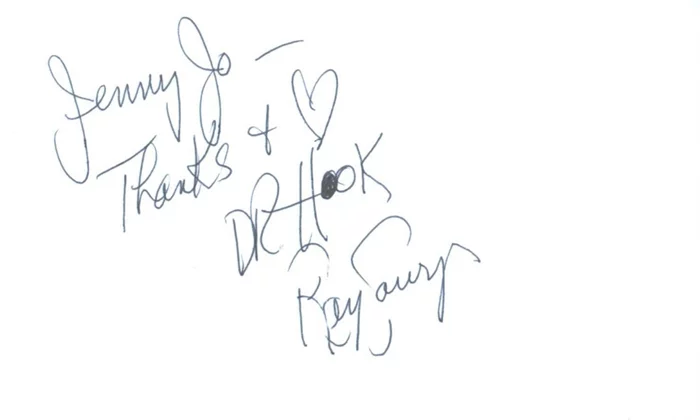 Jenny Jo —
Thanks + ♡
DR HOOK
Ray